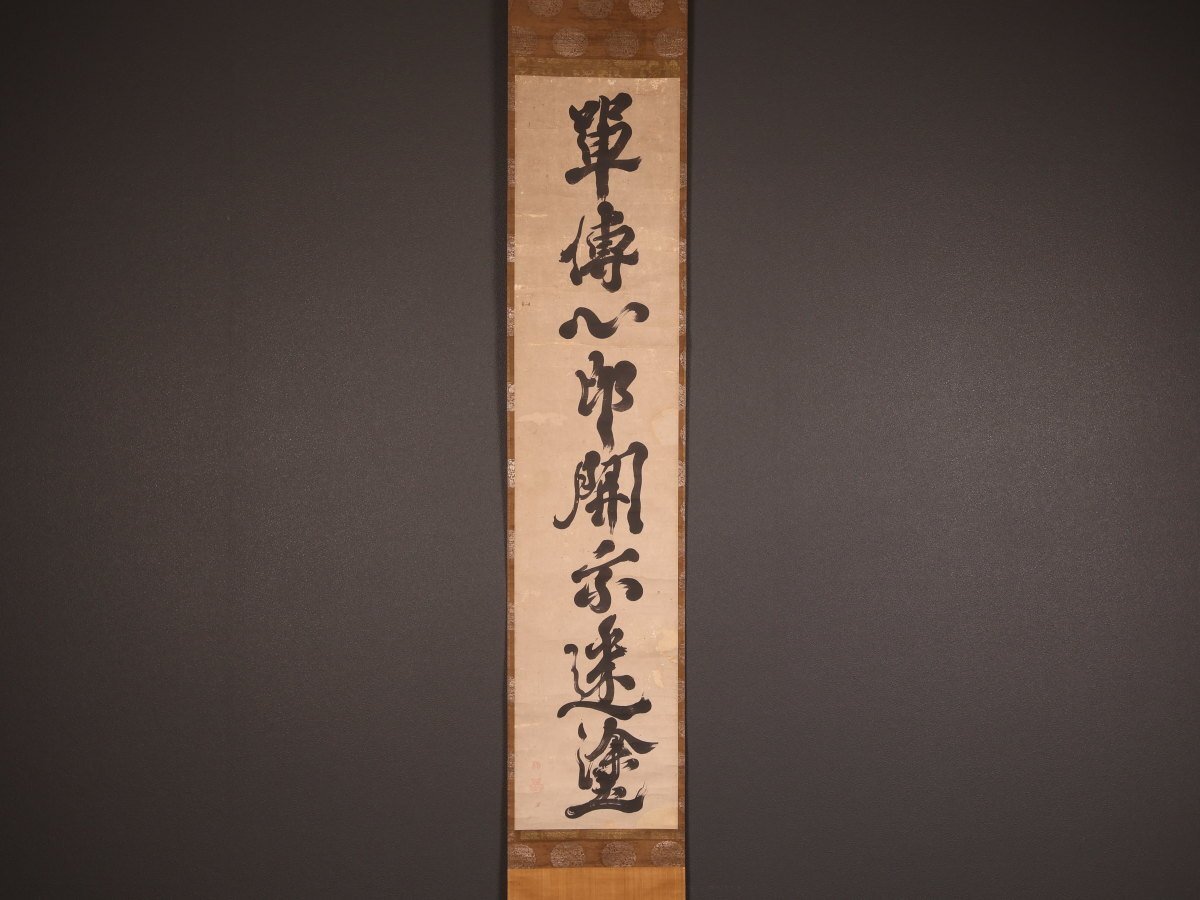 單傳心印開示迷塗